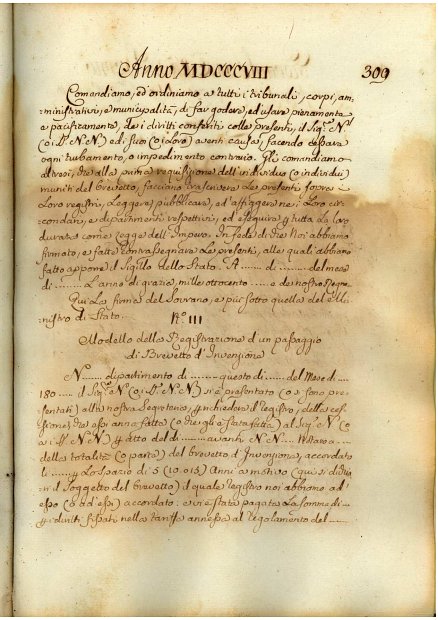 Anno MDCCCVIII
309
Comandiamo, ed ordiniamo a tutti i tribunali, corpi, am-
ministrativi, e municipalità, di far godere, ed usare pienamente
e pacificamente, dei diritti conferiti colle presenti, il Sig.r N.
(o i D. N. N) ed suo (o i Loro) aventi causa, facendo cessare
ogni turbamento, o impedimento contrario. Gli comandiamo
altresì, che alla prima requisizione dell'individuo (o individui
muniti del brevetto, facciano trascrivere Le presenti sopra i
Loro registri, Leggere, pubblicare, ed affiggere ne' Loro cir-
condarj, e dipartimenti rispettivi, ed eseguire per tutta La loro
durata come Legge dell'Impero. In fede di che Noi abbiamo
firmato, e fatto contrassegnare Le presenti, alle quali abbiamo
fatto apporre il Sigillo dello Stato. A ...... di ...... del mese
di ........ L'anno di grazia, mille ottocento ...... e de nostro Regno
Qui La firma del Sovrano, e più sotto quella del Mi-
nistro di Stato.
N.o III
Modello della Registrazione d'un passaggio
di Brevetto d'Invenzione
N. ...... dipartimento di ......... questo dì ...... del Mese di ....
180 .... il Sig.r N. (o i D. N. N) si è presentato (o sono pre-
sentati) alla nostra Segreteria, per richiedere il registro, della ces-
sione, che essi anno fatta (o che gli è stata fatta) al Sig.r N. (o
a i D. N. N) per atto del di ........ avanti N. N. ...... Notaro a ....
della totalità (o parte) del brevetto d'Invenzione, accordato
li ...... per Lo spazio di 5 (10. o 15) Anni a motivo (qui si dirà
il Soggetto del brevetto) il quale registro noi abbiamo ad
esso (o ad essi) accordato: e vi è stata pagata La somma di ...
per i diritti fissati nella tariffa annessa al regolamento del ......